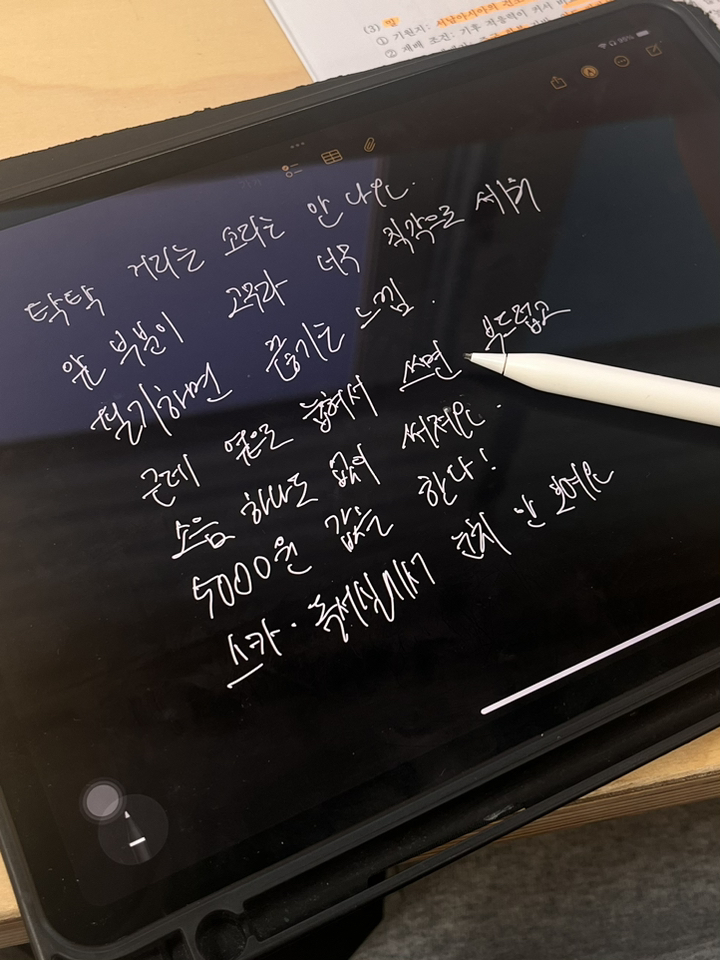 (3) 밀
① 기원지: 서남아시아의 건조
② 재배 조건: 기후 적응력이 커서
탁탁 거리는 소리는 안 나는.
앞 부분이 고무라 너무 직각으로 세워
필기하면 끊기는 느낌.
근데 옆으로 눕혀서 쓰면 부드럽고
소음 하나도 없이 써져요.
5000원 값은 한다!
스카·독서실에서 눈치 안 보여요